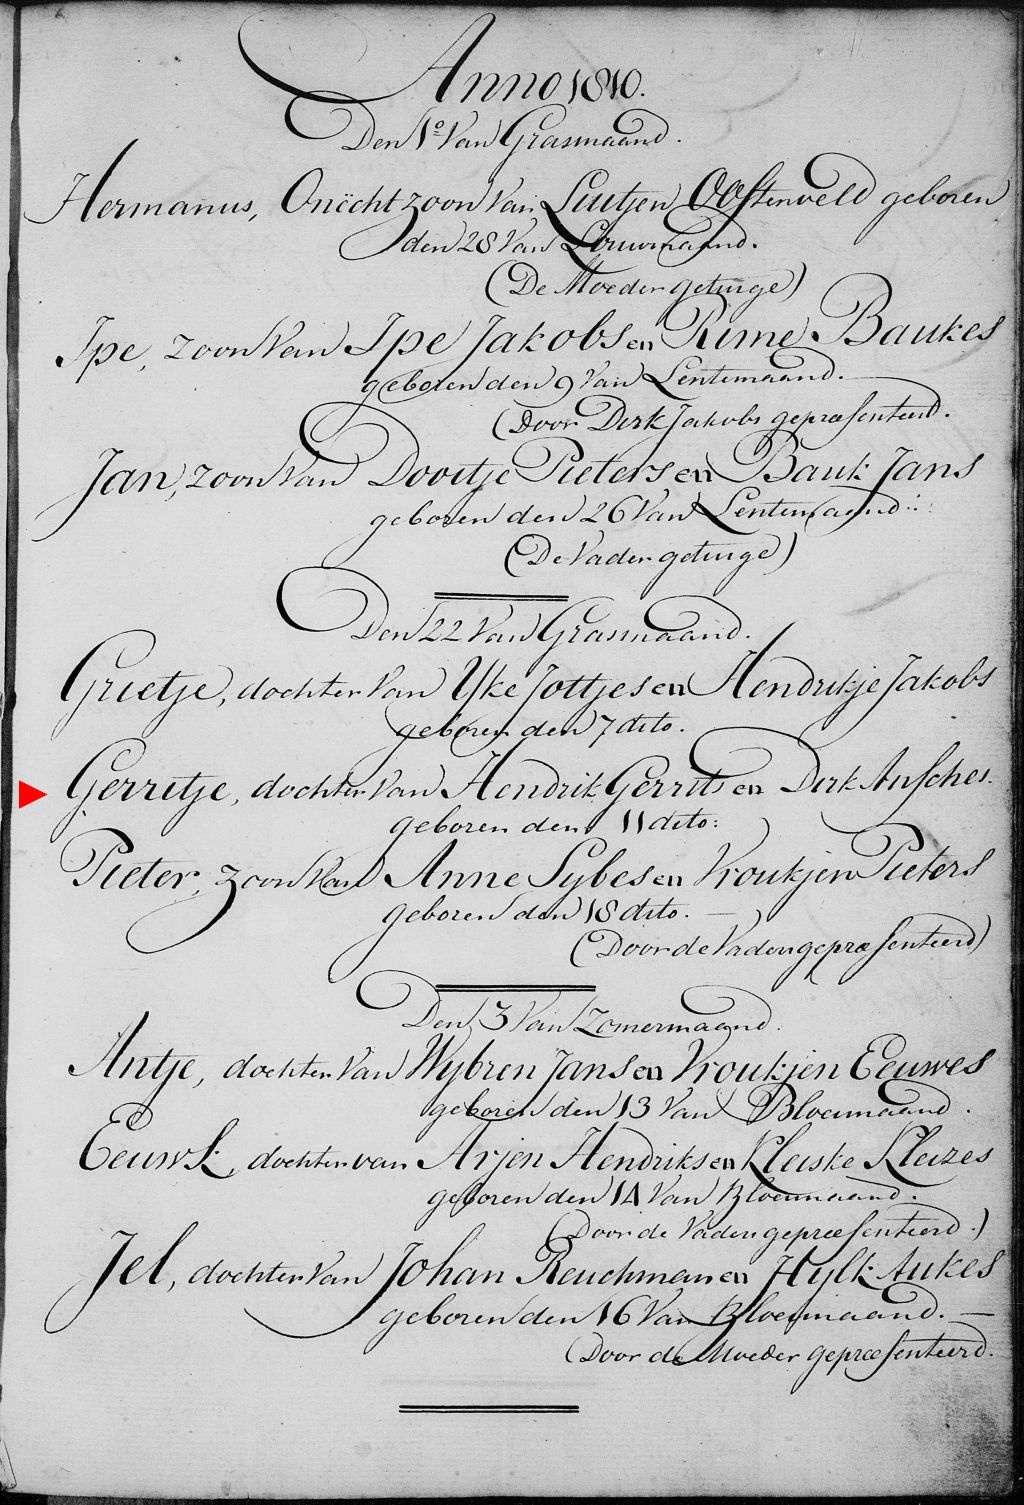 Anno 1810.
Den 1º Van Grasmaand.
Hermanus, Onëcht zoon Van Luitjen Oosterveld geboren
den 28 Van Louwmaand.
(De Moeder getuige)
Ipe, zoon Van Ipe Jakobs en Rime Baukes
geboren den 9 Van Lentemaand.
(Door Dirk Jakobs gepræsenteerd.
Jan, zoon Van Dooitje Pieters en Bauk Jans
geboren den 26 Van Lentemaand.
(De Vader getuige)
Den 22 Van Grasmaand.
Grietje, dochter Van Ijke Jottjes en Hendrikje Jakobs
geboren den 7 dito.
Gerretje, dochter Van Hendrik Gerrits en Dirk Ansches.
geboren den 11 dito:
Pieter, zoon Van Anne Sybes en Vroukjen Pieters
geboren den 18 dito. —
(Door de Vader gepræsenteerd)
Den 3 Van Zomermaand.
Antje, dochter Van Wybren Jans en Vroukjen Eeuwes
geboren den 13 Van Bloeimaand.
Eeuwk, dochter van Arjen Hendriks en Kleiske Kleizes
geboren den 14 Van Bloeimaand.
(Door de Vader gepræsenteerd.)
Jel, dochter Van Johan Reuchman en Hylk Aukes
geboren den 16 Van Bloeimaand. —
(Door de Moeder gepræsenteerd.